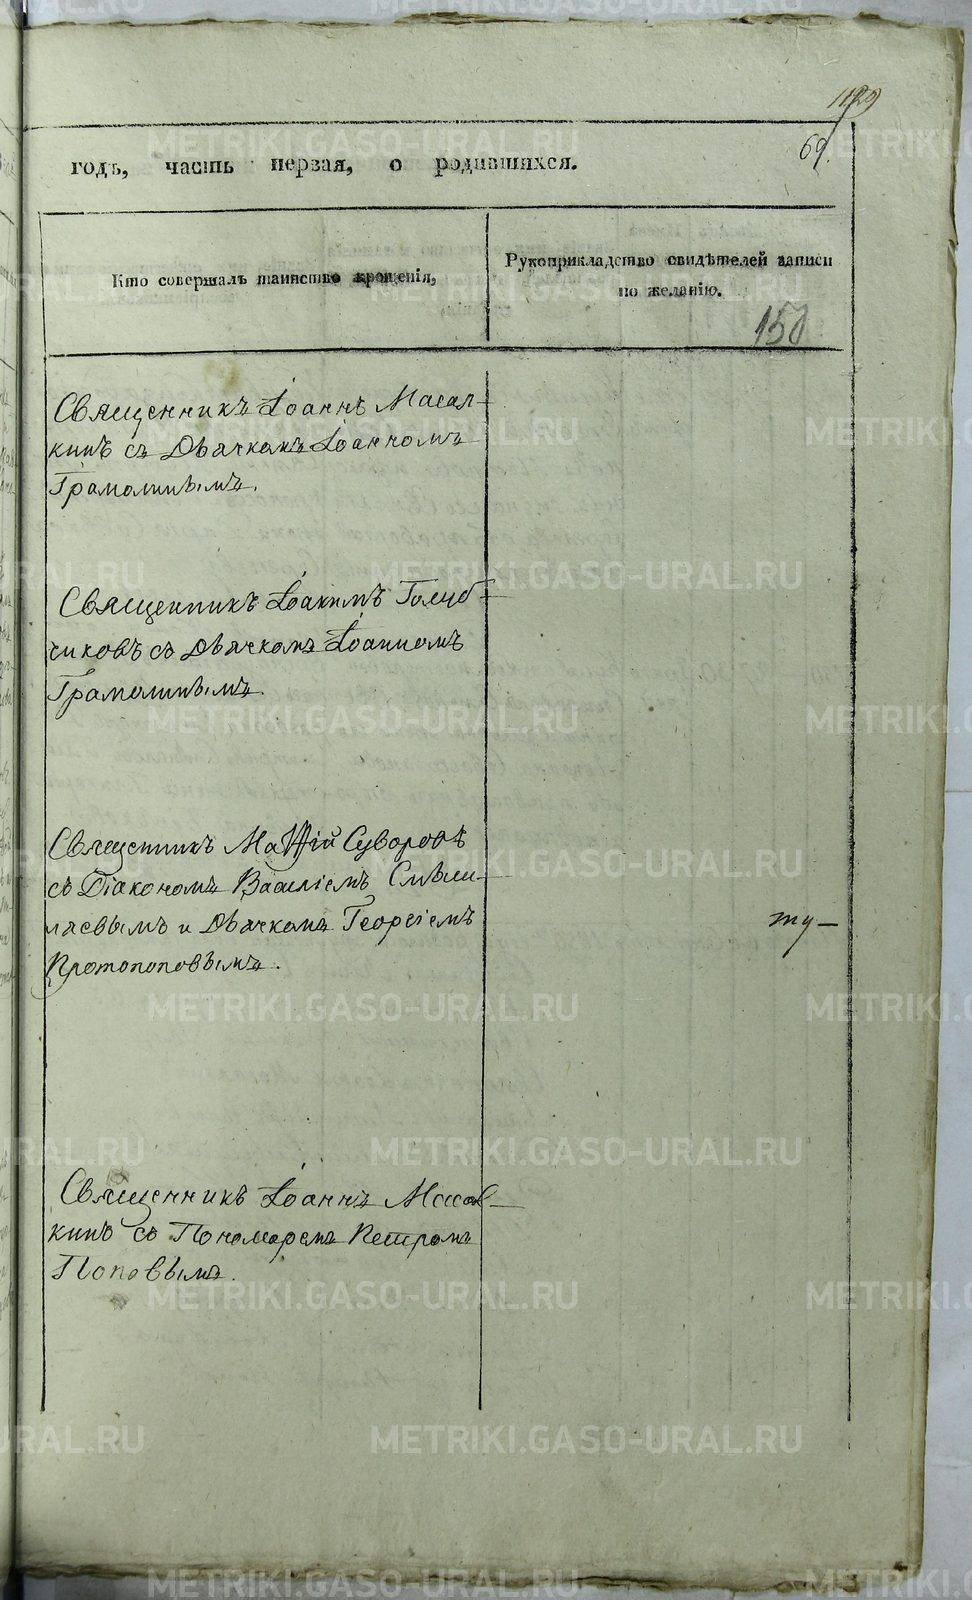 69.
годъ, часть первая, о родившихся.
Кто совершалъ таинство крещенія,
Рукоприкладство свидѣтелей записи
по желанію.
150
Священникъ Іоаннъ Масал-
кинъ съ Дьячкомъ Іоанномъ
Грамолинымъ.
Священникъ Іоакимъ Голуб-
чиковъ съ Дьячкомъ Іоанномъ
Грамолинымъ.
Священникъ Матѳій Суворовъ
съ Діакономъ Василіемъ
и Дьячкомъ Георгіемъ
Протопоповымъ.
ту-
Священникъ Іоаннъ Масал-
кинъ съ Пономаремъ Петромъ
Поповымъ.
METRIKI.GASO-URAL.RU